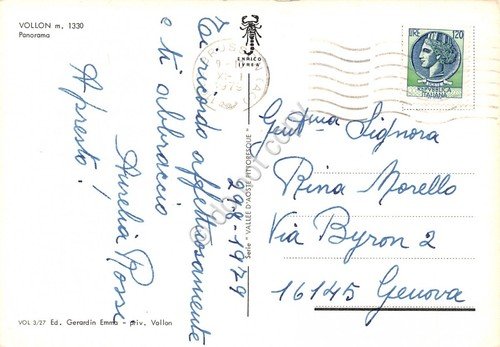 VOLLON m. 1330
Panorama
Ti ricordo affettuosamente
e ti abbraccio
A presto!
Aurelia Rossi
29-8-1979
ENRICO
IVREA
Serie "VALLEE D'AOSTE PITTORESQUE"
LIRE 120
REPVBBLICA
ITALIANA
Gent.ma Signora
Rina Morello
Via Byron 2
16145 Genova
VOL 3/27 Ed. Gerardin Emma - priv. Vollon